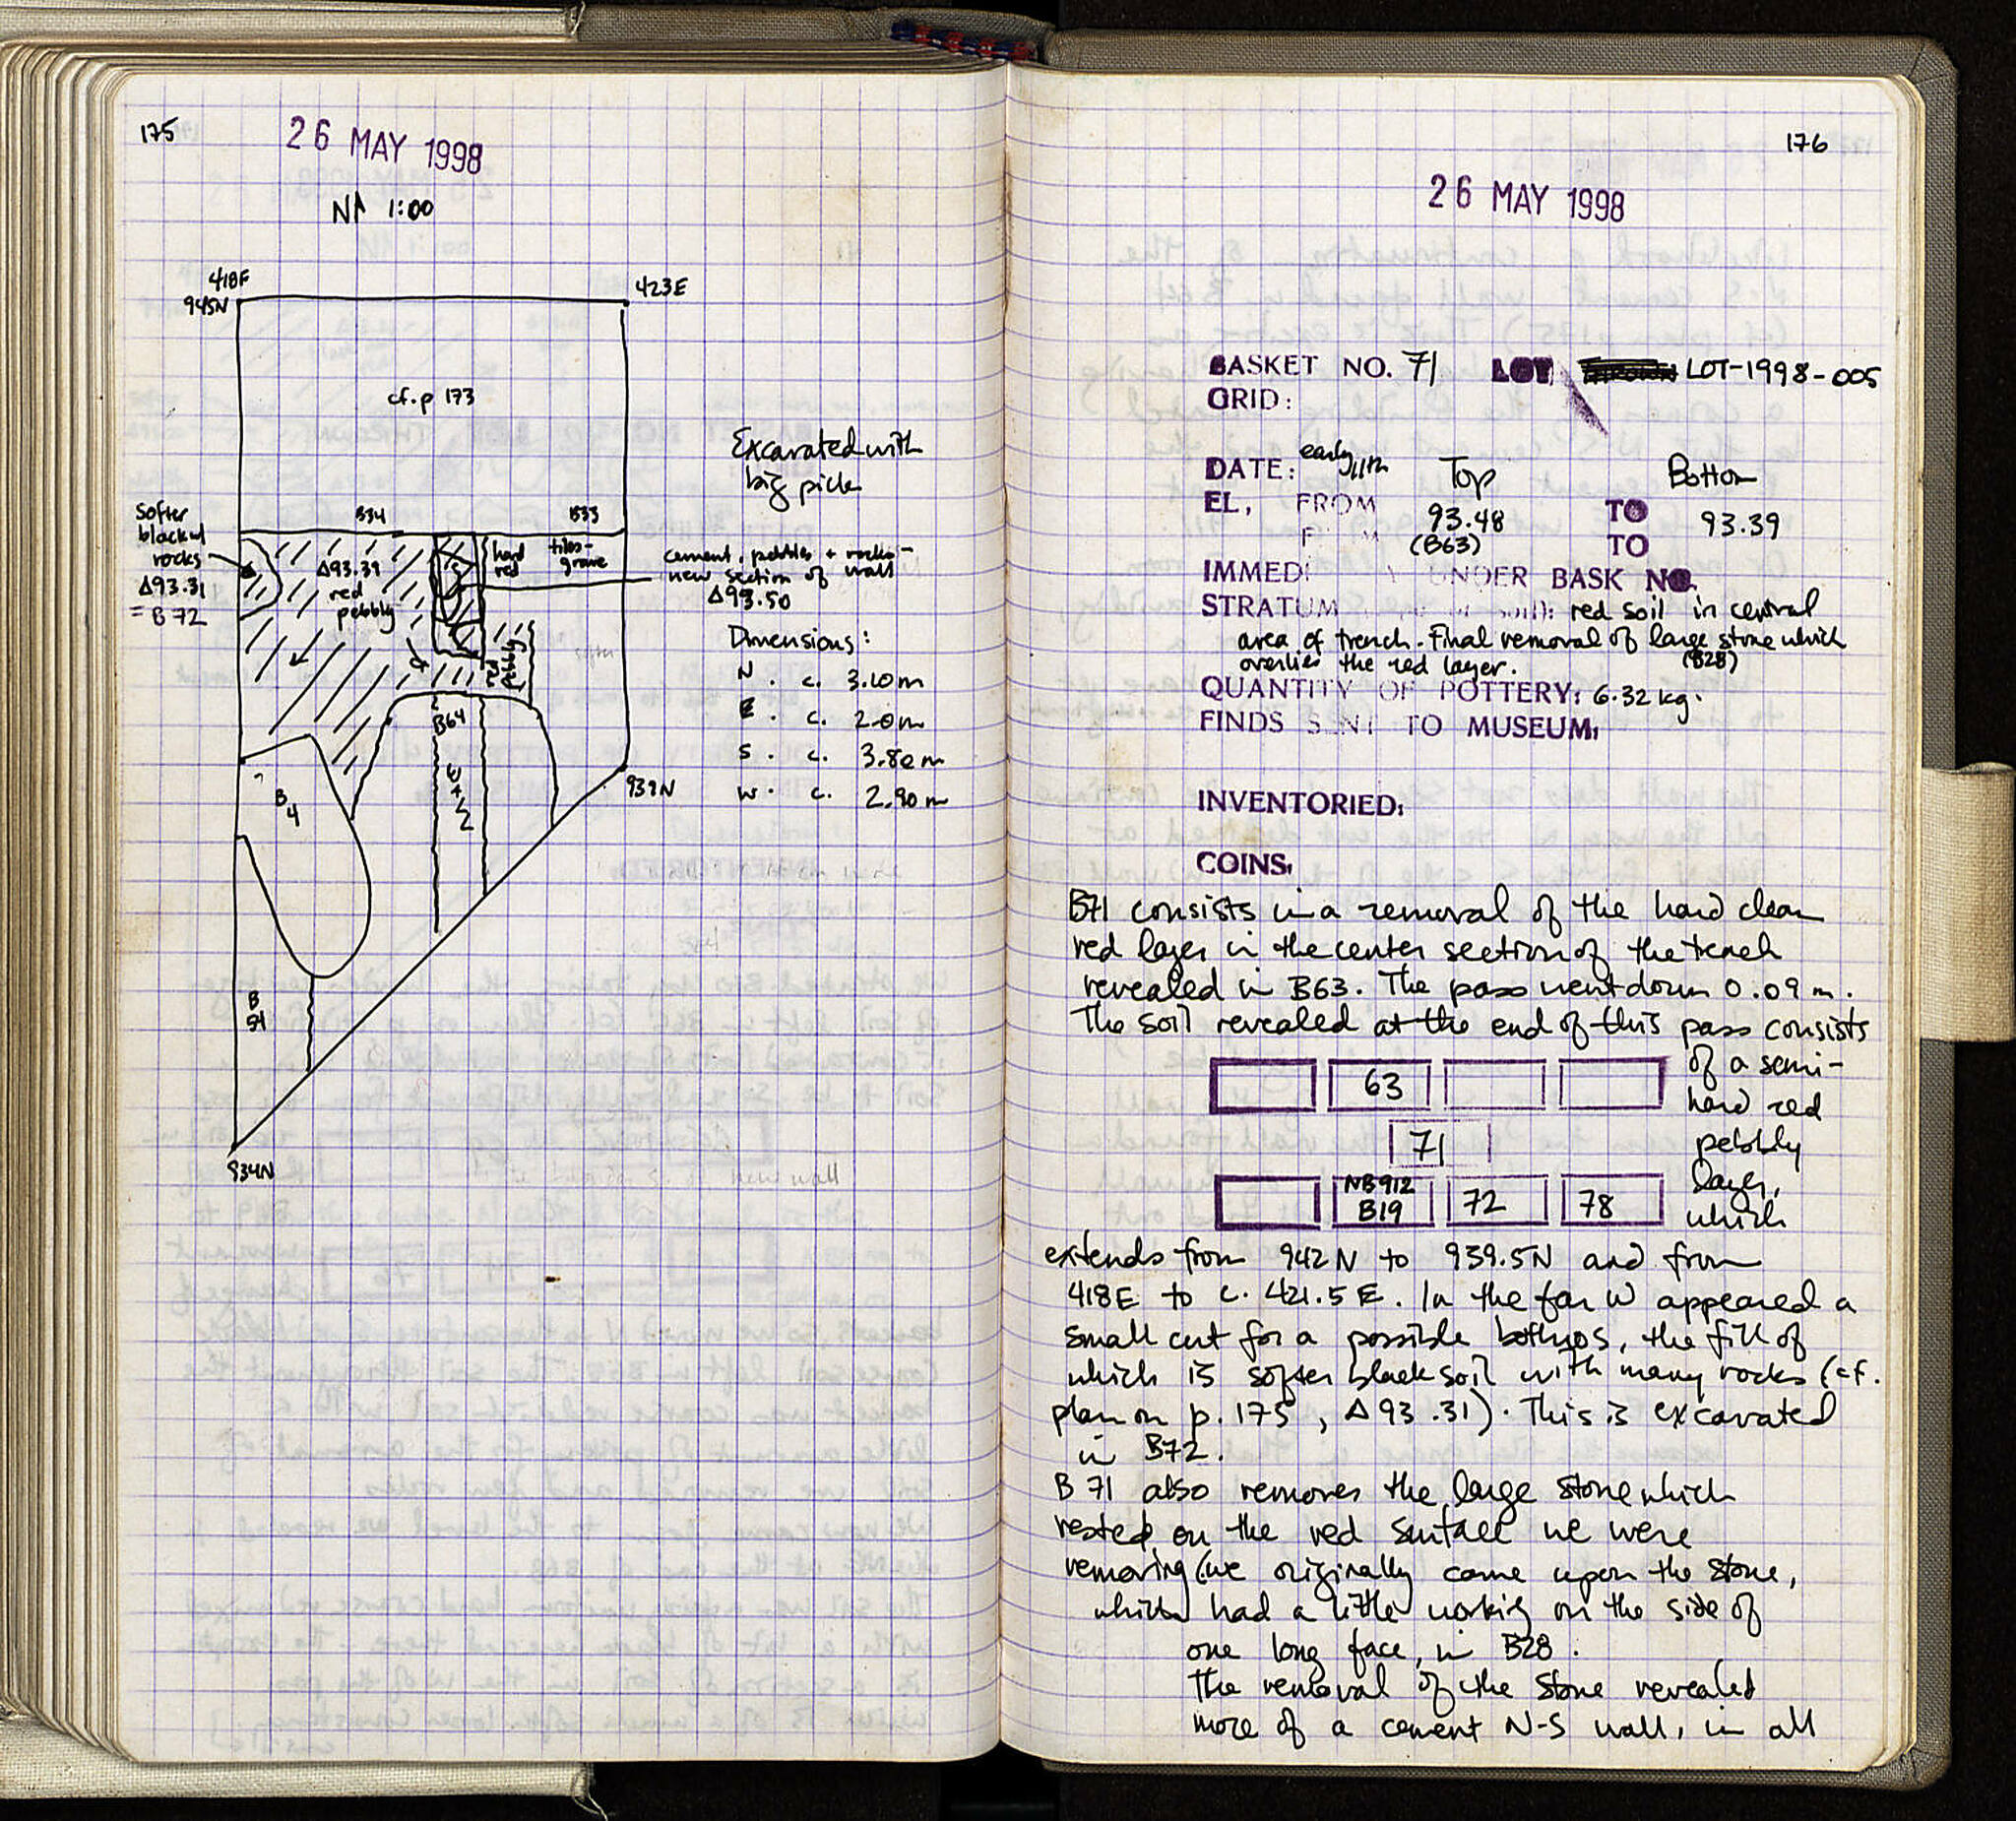 175
26 MAY 1998
N 1:00
418E
945N
423E
cf. p 173
Excavated with
big pick
Softer
black w/
rocks
Δ93.31
= B 72
B34
B33
Δ93.39
red
pebbly
hard
red
tiles-
grave
cement, pebbles + rocks -
new section of wall
Δ93.50
red
pebbly
Dimensions:
N . c. 3.10 m
E . c. 2.0 m
S . c. 3.80 m
W . c. 2.90 m
B64
939N
B
4
B
54
934N
176
26 MAY 1998
BASKET NO. 71 LOT LOT-1998-005
GRID:
DATE: early 11th Top Bottom
EL, FROM 93.48 TO 93.39
(B63) TO
IMMEDI UNDER BASK NO.
STRATUM red soil in central
area of trench. Final removal of large stone which
overlies the red layer. (B28)
QUANTITY OF POTTERY: 6.32 kg.
FINDS SENT TO MUSEUM:
INVENTORIED:
COINS:
B71 consists in a removal of the hard clean
red layer in the center section of the trench
revealed in B63. The pass went down 0.09 m.
The soil revealed at the end of this pass consists
of a semi-
63
hard red
71
pebbly
layer,
NB912
B19 72 78
which
extends from 942N to 939.5N and from
418E to c. 421.5E. In the far W appeared a
small cut for a possible bothros, the fill of
which is softer black soil with many rocks (cf.
plan on p. 175, Δ 93.31). This is excavated
in B72.
B 71 also removes the large stone which
rested on the red surface we were
removing (we originally came upon the stone,
which had a little working on the side of
one long face, in B28.
The removal of the stone revealed
more of a cement N-S wall, in all